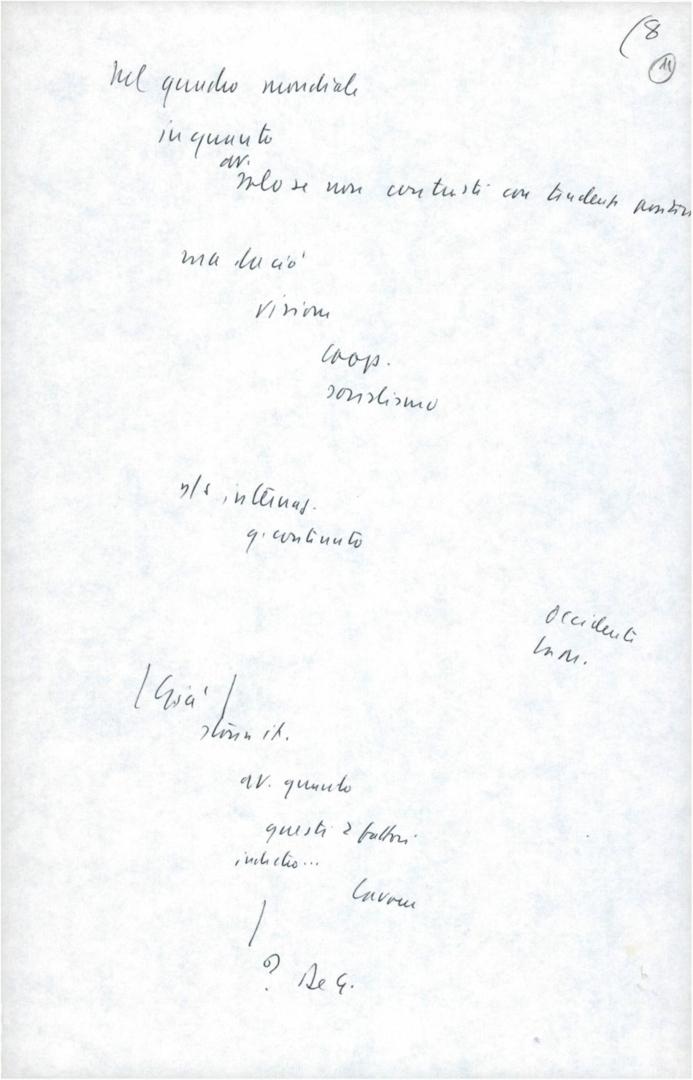 (8
11
Nel quadro mondiale
in quanto
av.
solo se non contrasti con tendenze
ma da ciò
visione
Coop.
socialismo
n/s internaz.
q. continuato
Occidente
(Già)
storia it.
av. quanto
questi 2 fattori
indietro...
Cavour
? De G.